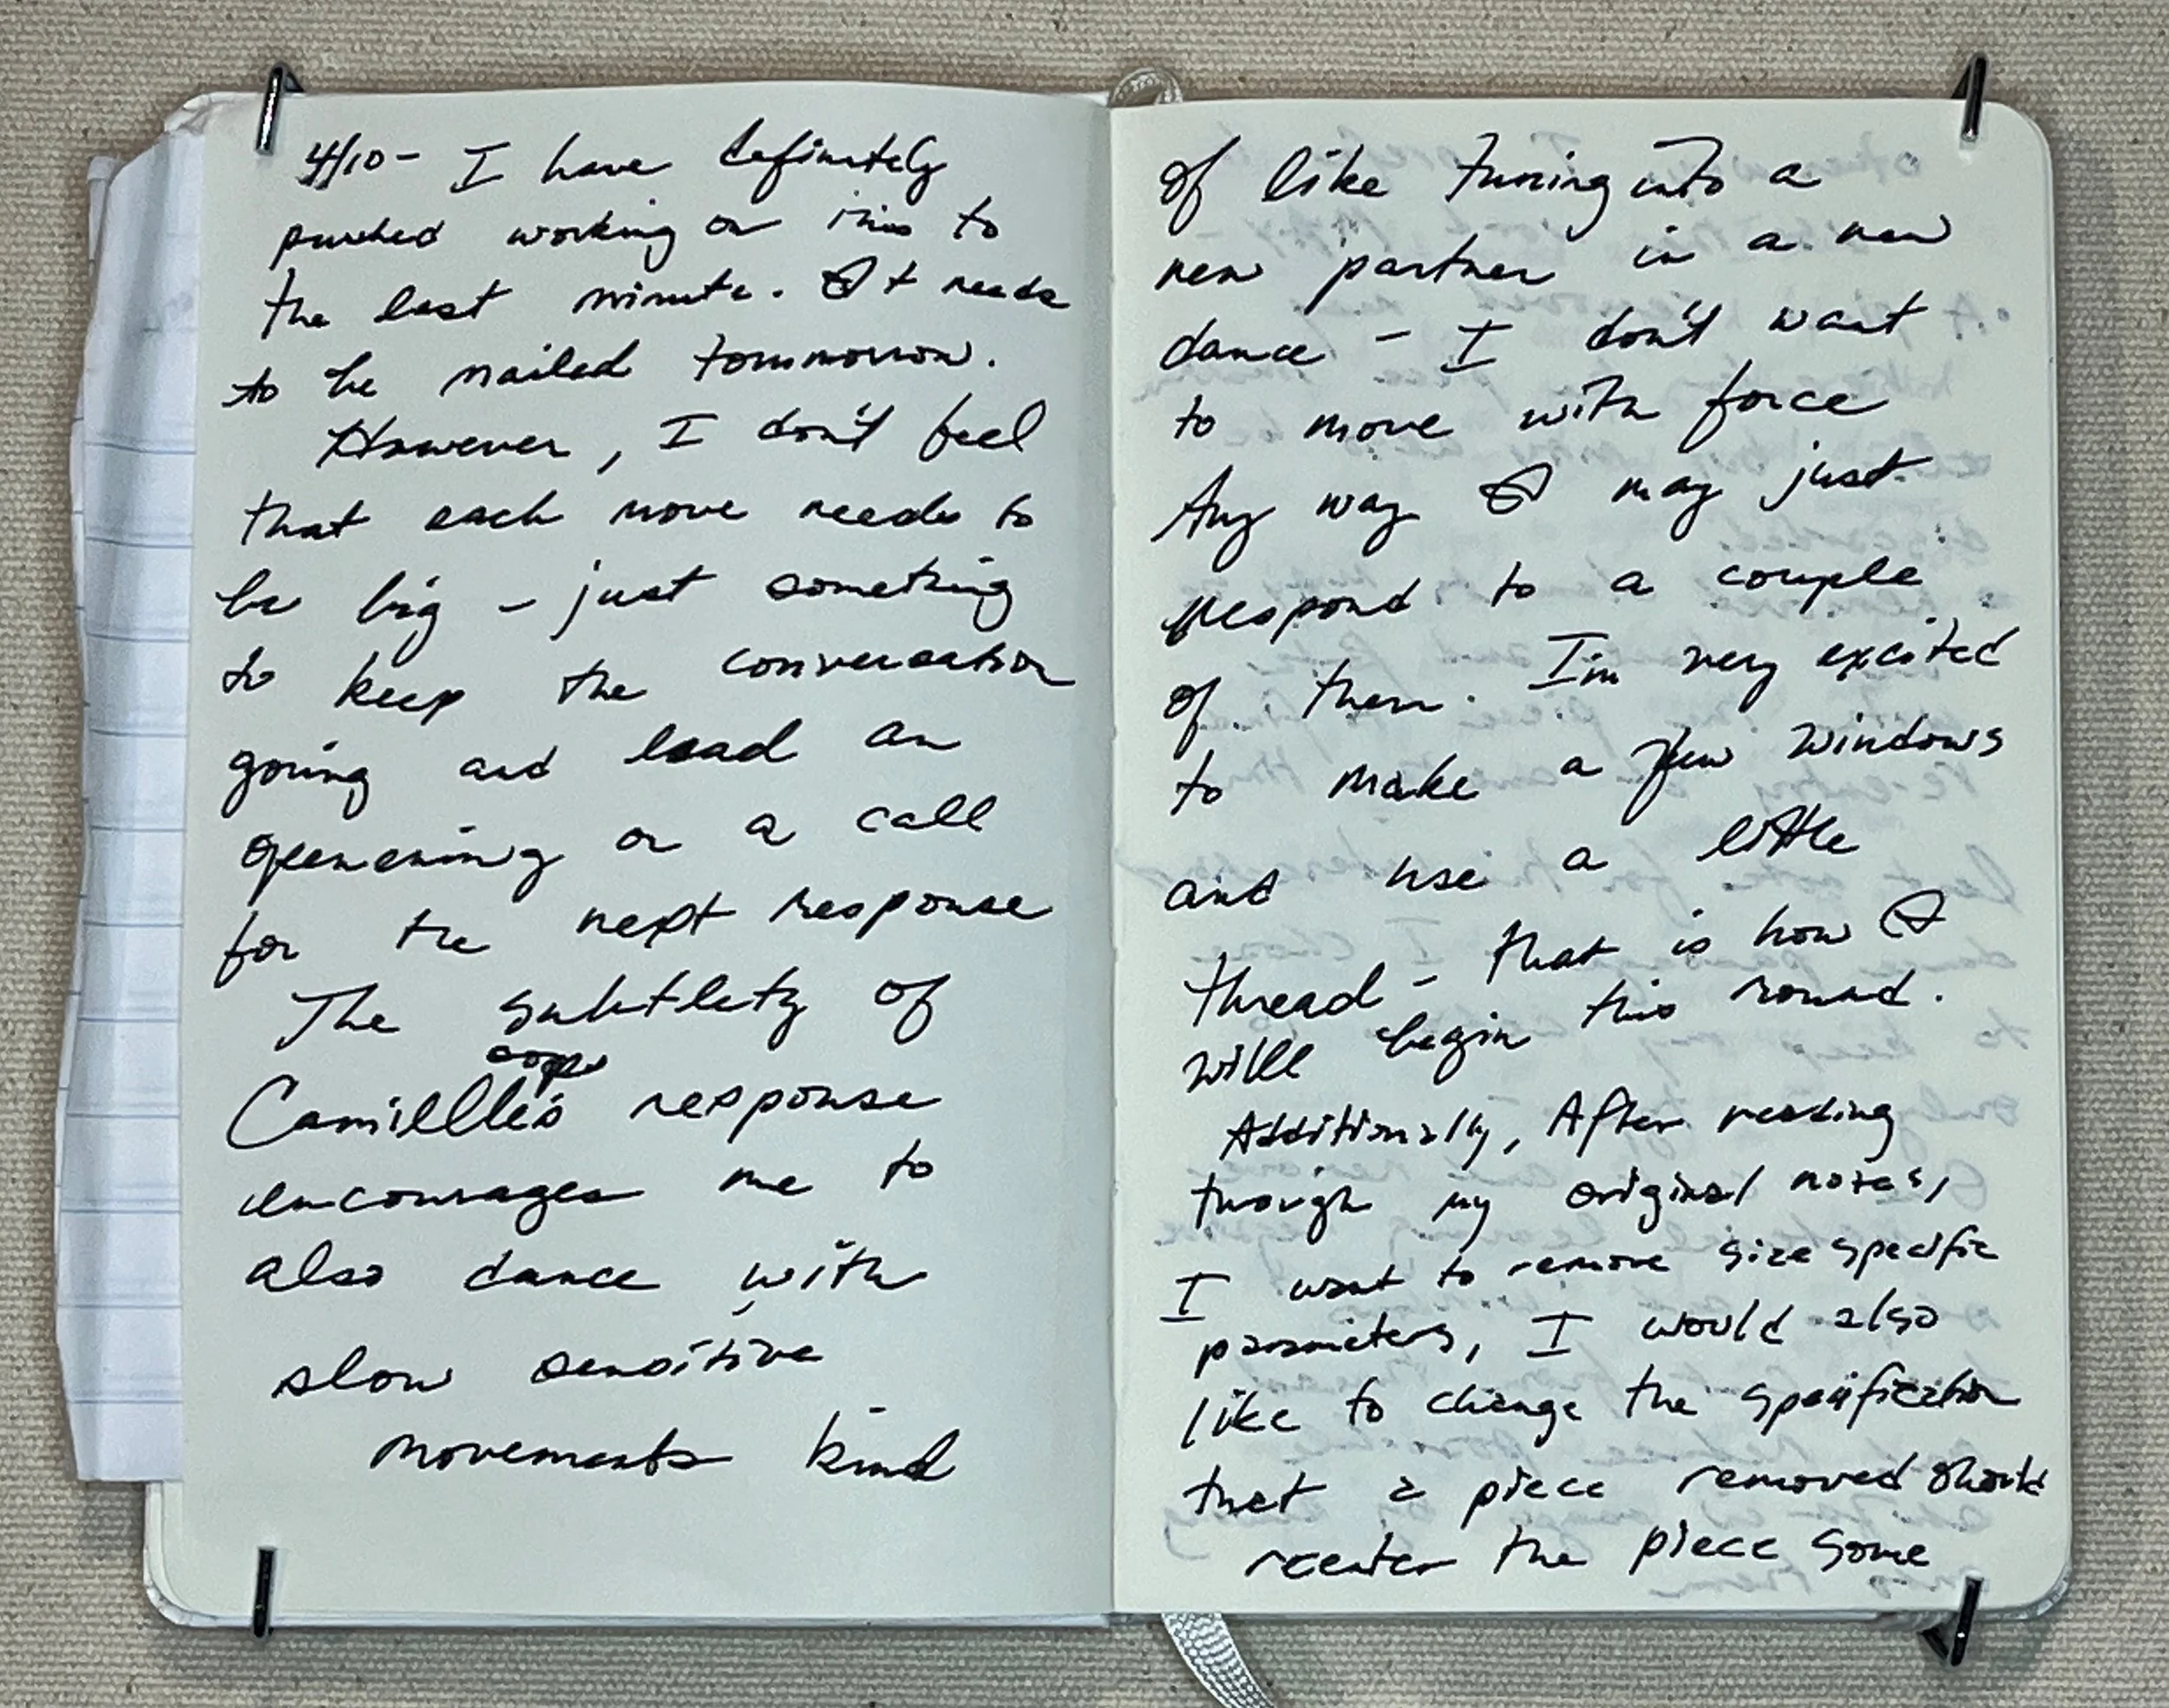 4/10 - I have definitely
pushed working on this to
the last minute. It needs
to be mailed tommorrow.
However, I don't feel
that each move needs to
be big - just something
to keep the conversation
going and lead an
openening or a call
for the next response
The subtlety of
oops
Camiellle's response
encourages me to
also dance with
slow sensitive
movements kind
of like tuning into a
new partner in a new
dance - I don't want
to move with force
Any way I may just
respond to a couple
of them. I'm very excited
to make a few windows
and use a little
thread - that is how I
will begin this round.
Additionally, After reading
through my original notes,
I want to remove size specific
parameters, I would also
like to change the specification
that a piece removed should
reenter the piece some